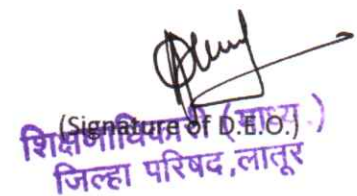 (Signature of D.E.O.)
शिक्षणाधिकारी (माध्य.)
जिल्हा परिषद,लातूर